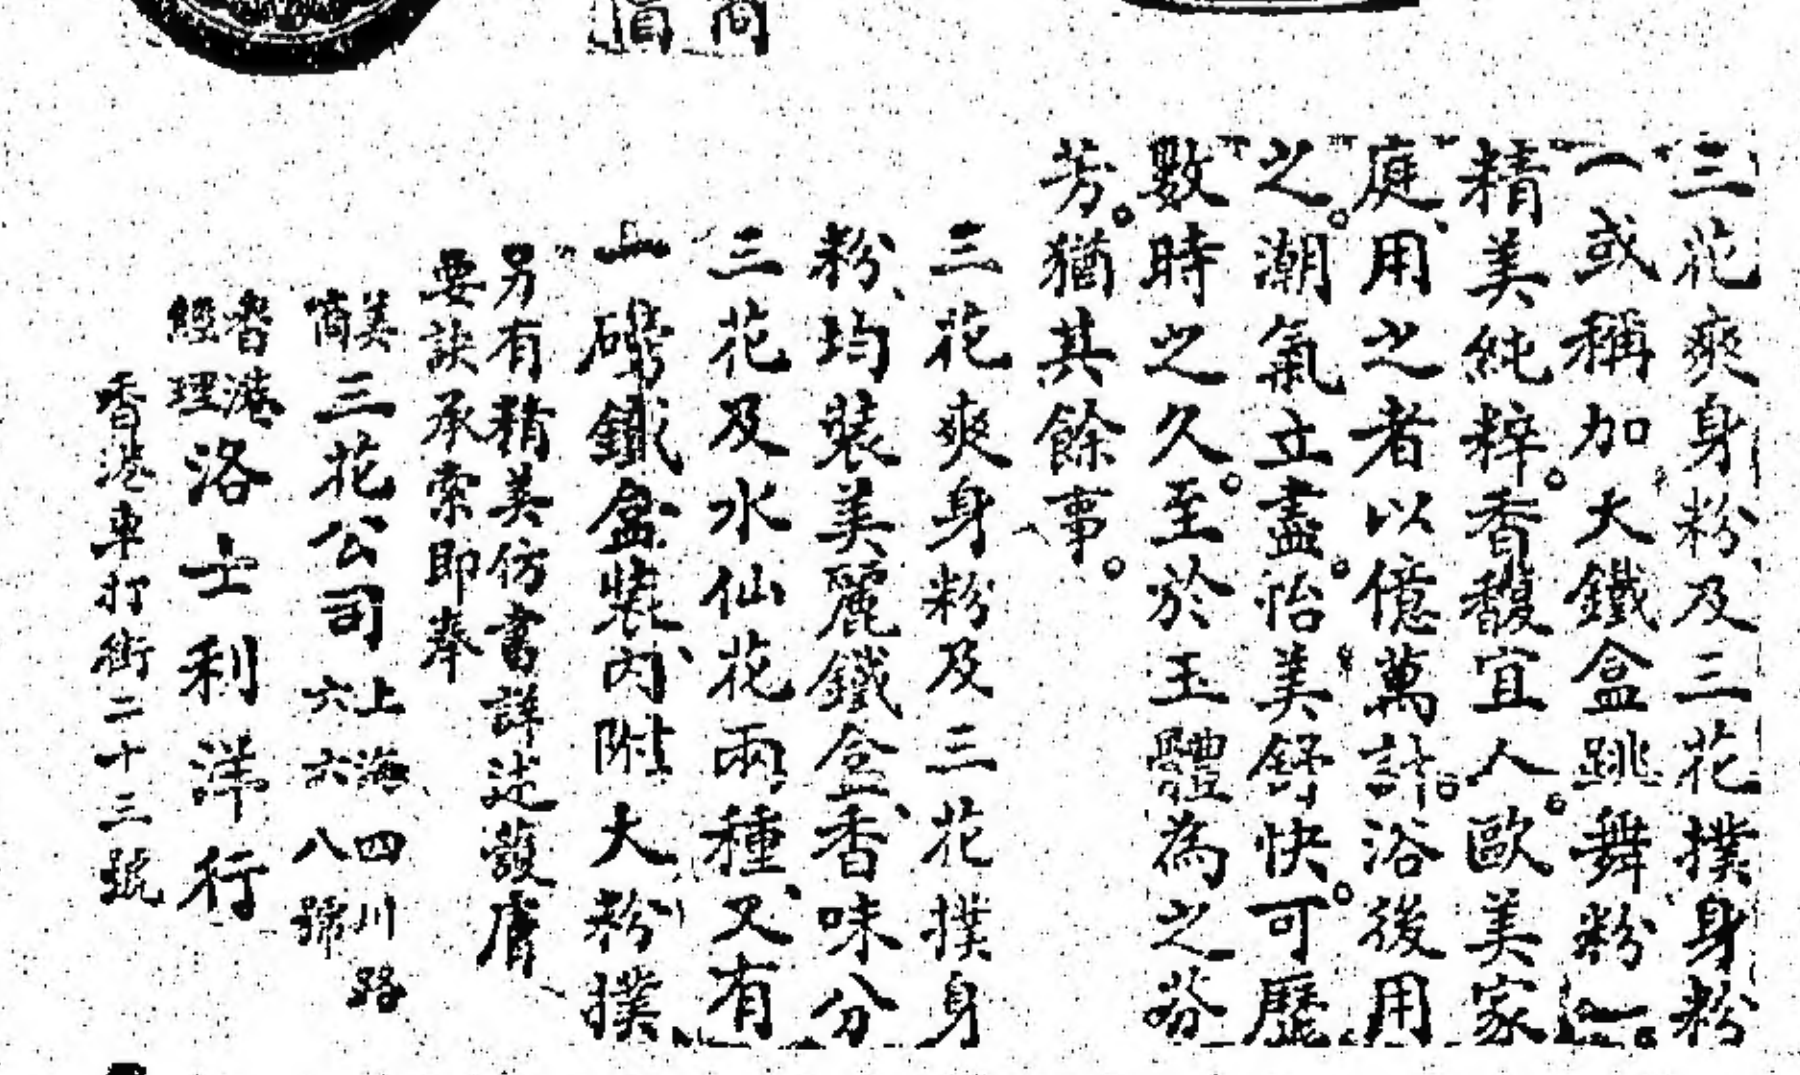 三花爽身粉、及三花撲身粉
（或稱加大鐵盒跳舞粉）。
精美純粹。香馥宜人。歐美家
庭、用之者以億萬計。浴後用
之。潮氣立盡。怡美舒快。可歷
數時之久。至於玉體為之芬
芳。猶其餘事。
三花爽身粉及三花撲身
粉、均裝美麗鐵盒、香味分
三花及水仙花兩種、又有
一磅鐵盒裝、內附大粉撲
另有精美仿書詳述護膚
要訣承索即奉
美商三花公司上海四川路六六八號
香港經理洛士利洋行
香港車打街二十三號